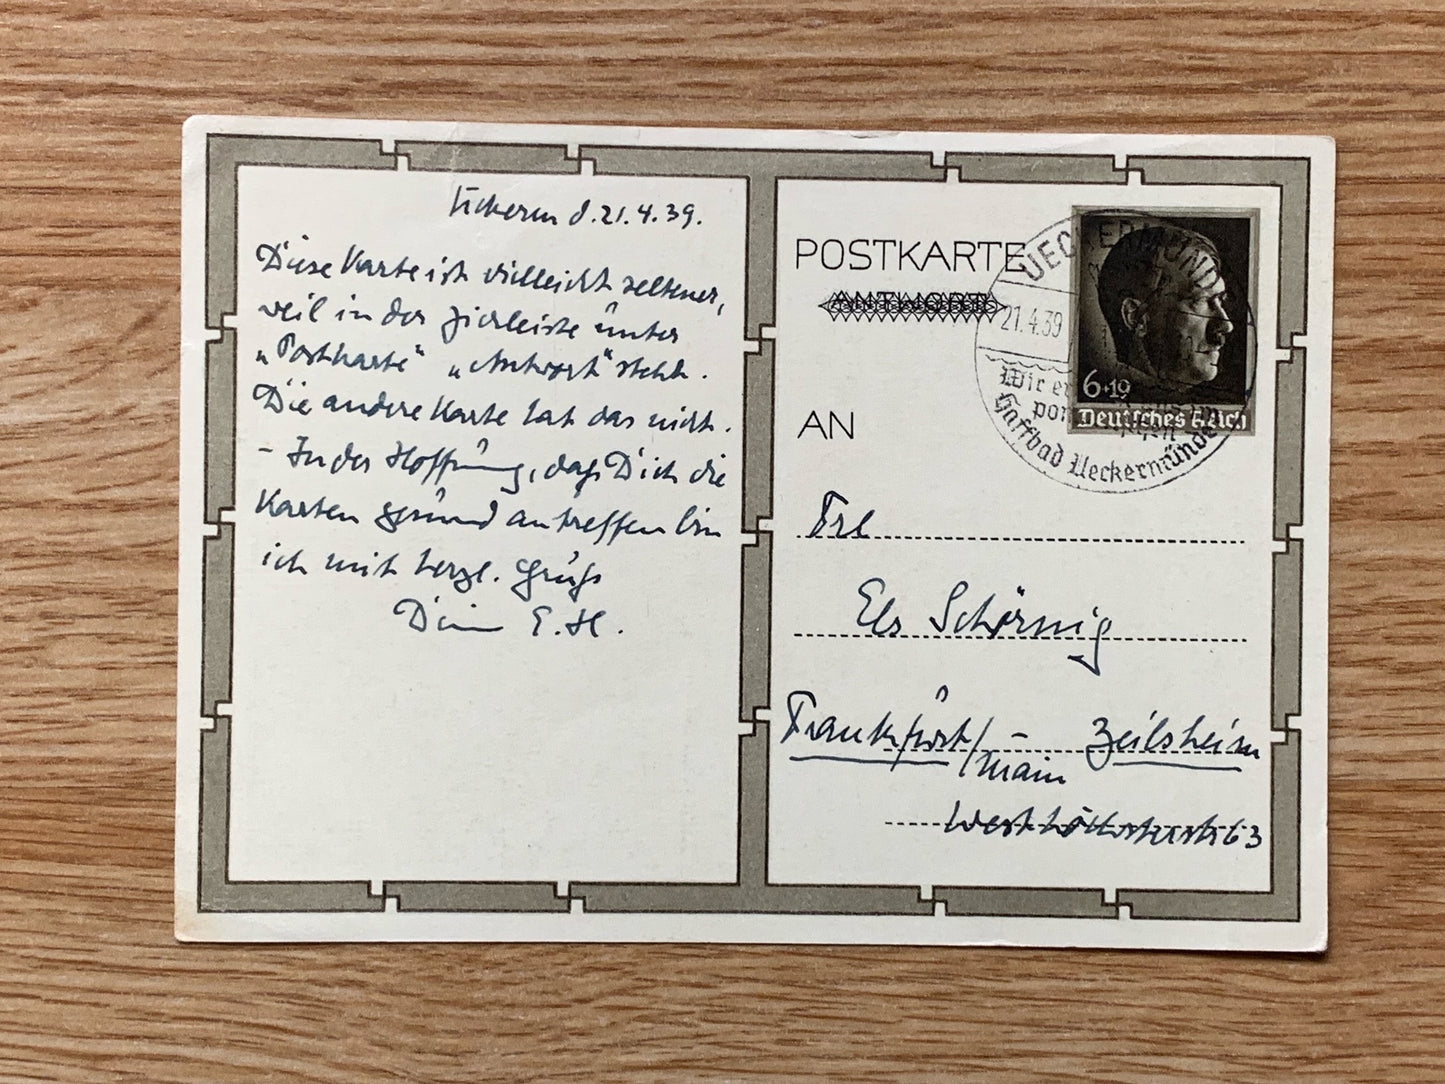 d. 21.4.39.
Diese Karte ist vielleicht seltener,
weil in der Zierleiste unter
„Postkarte“ „Antwort“ steht.
Die andere Karte hat das nicht.
– In der Hoffnung, daß Dich die
Karten gesund antreffen bin
ich mit herzl. Gruß
Dein E. H.
POSTKARTE
ANTWORT
AN
UECKERMÜNDE
21.4.39
Wir
Haffbad Ueckermünde
6+19
Deutsches Reich
Frl
Els Schörnig
Frankfurt/Main – Zeilsheim
63